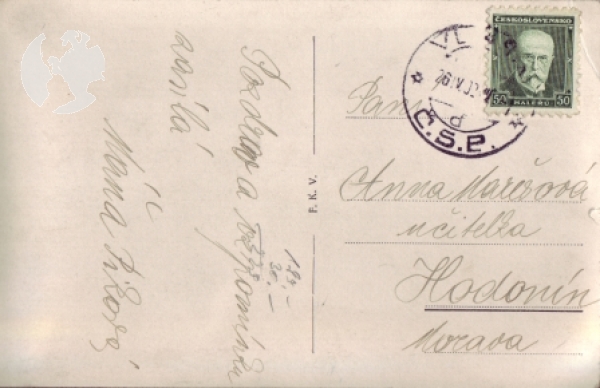 Pozdrav a vzpomínka
zasílá
Máňa
130.–
30.–
F. K. V.
ČESKOSLOVENSKO
50 HALÉŘŮ 50
Č.S.P.
Paní
Anna Marešová
učitelka
Hodonín
Morava